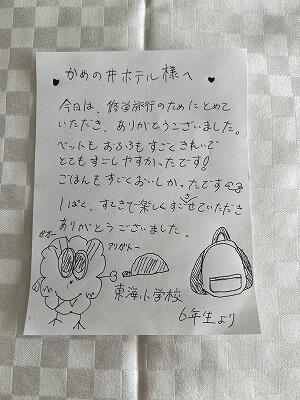 かめの井ホテル様へ
今日は、修学旅行のためにとめて
いただき、ありがとうございました。
ベットもおふろもすごくきれいで
とてもすごしやすかったです!
ごはんもすごくおいしかったです
しばらく、すてきで楽しくすごせていただき
ありがとうございました。
ガオー
アリガトー
東海小学校
6年生より